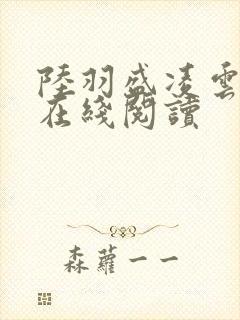 陸羽盛凌雲
在綫閱讀
森蘿一一